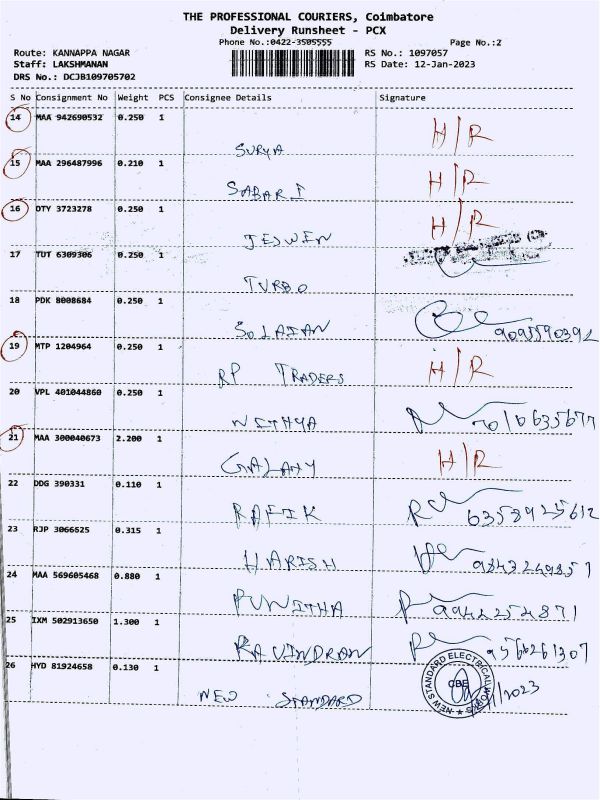 THE PROFESSIONAL COURIERS, Coimbatore
Delivery Runsheet - PCX
Phone No.:0422-3505555 Page No.:2
Route: KANNAPPA NAGAR RS No.: 1097057
Staff: LAKSHMANAN RS Date: 12-Jan-2023
DRS No.: DCJB109705702
S No Consignment No Weight PCS Consignee Details Signature
14 MAA 942690532 0.250 1 H/R
SURYA
15 MAA 296487996 0.210 1 H/R
SABARI
16 DTY 3723278 0.250 1 H/R
JESWIN
17 TUT 6309306 0.250 1
TURBO
18 PDK 8008684 0.250 1
SOLAIAN 9095590392
19 MTP 1204964 0.250 1 H/R
RP TRADERS
20 VPL 401044860 0.250 1
NITHYA 7010635677
21 MAA 300040673 2.200 1 H/R
GALAXY
22 DDG 390331 0.110 1
RAFIK 6358925612
23 RJP 3066525 0.315 1
HARISH 9843249851
24 MAA 569605468 0.880 1
PUNITHA 9944254871
25 IXM 502913650 1.300 1
RAVINDRAN 9566261307
26 HYD 81924658 0.130 1
NEW STANDARD
NEW STANDARD ELECTRICAL WORKS
CBE
/2023